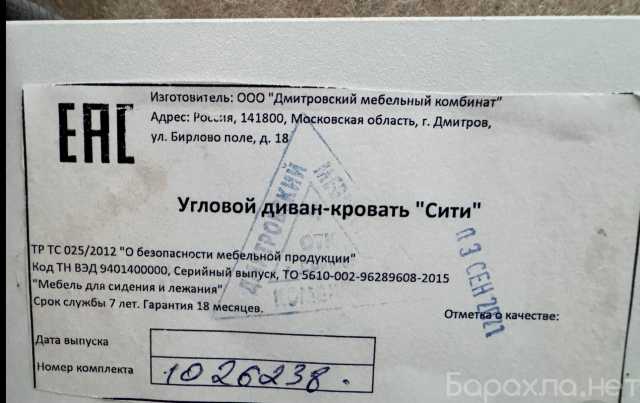 EAC
Изготовитель: ООО "Дмитровский мебельный комбинат"
Адрес: Россия, 141800, Московская область, г. Дмитров,
ул. Бирлово поле, д. 18
Угловой диван-кровать "Сити"
ДМИТРОВСКИЙ
ОТК
ТР ТС 025/2012 "О безопасности мебельной продукции"
Код ТН ВЭД 9401400000, Серийный выпуск, ТО 5610-002-96289608-2015
"Мебель для сидения и лежания"
Срок службы 7 лет. Гарантия 18 месяцев.
03 СЕН 2021
Отметка о качестве:
Дата выпуска
Номер комплекта 1026238.
Барахла.нет